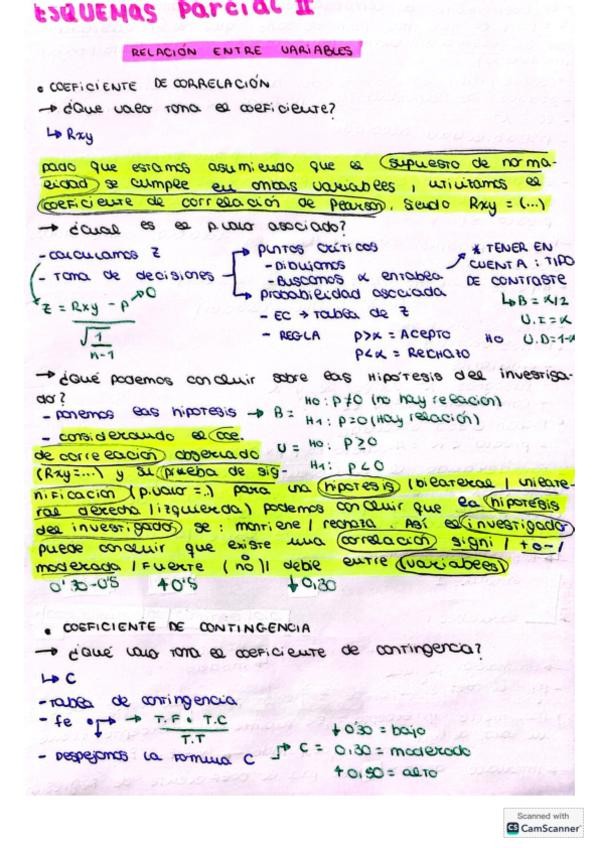 ESQUEMAS Parcial II
RELACIÓN ENTRE VARIABLES
• COEFICIENTE DE CORRELACIÓN
→ ¿Que valor toma el coeficiente?
↳ Rxy
Dado que estamos asumiendo que el supuesto de norma-
lidad se cumple en ambas variables, utilizamos el
coeficiente de correlación de Pearson, siendo Rxy = (...)
→ ¿Cual es el p.valor asociado?
- calculamos Z
- Toma de decisiones
Z = Rxy - P → 0
√1
n-1
Puntos críticos
- Dibujamos
- Buscamos α en tabla
Probabilidad asociada
- EC → Tabla de Z
- REGLA P>α = Acepto Ho
P<α = Rechazo
* TENER EN
CUENTA: TIPO
DE CONTRASTE
↳ B = α/2
U.I = α
U.D = 1-α
→ ¿Qué podemos concluir sobre las Hipótesis del investiga-
dor?
- ponemos las hipotesis → B = Ho: P≠0 (no hay relación)
H1: P=0 (Hay relación)
U = Ho: P≥0
H1: P<0
- considerando el coe.
de correlación observado
(Rxy=...) y su prueba de sig-
nificación (p.valor =.) para una hipotesis (bilateral / unilate-
ral derecha / izquierda) podemos concluir que la hipótesis
del investigador se: mantiene / rechaza. Así el investigador
puede concluir que existe una correlación signi / + o - /
moderada / Fuerte (no) / debil entre (variables)
0'30-0'5 ↑0'5 ↓0,30
• COEFICIENTE DE CONTINGENCIA
→ ¿Qué valor toma el coeficiente de contingencia?
↳ C
- Tabla de contingencia
- fe → T.F • T.C
T.T
- Despejamos la formula C → C =
↓0'30 = bajo
0,30 = moderado
↑0,50 = alto
Scanned with
CS CamScanner